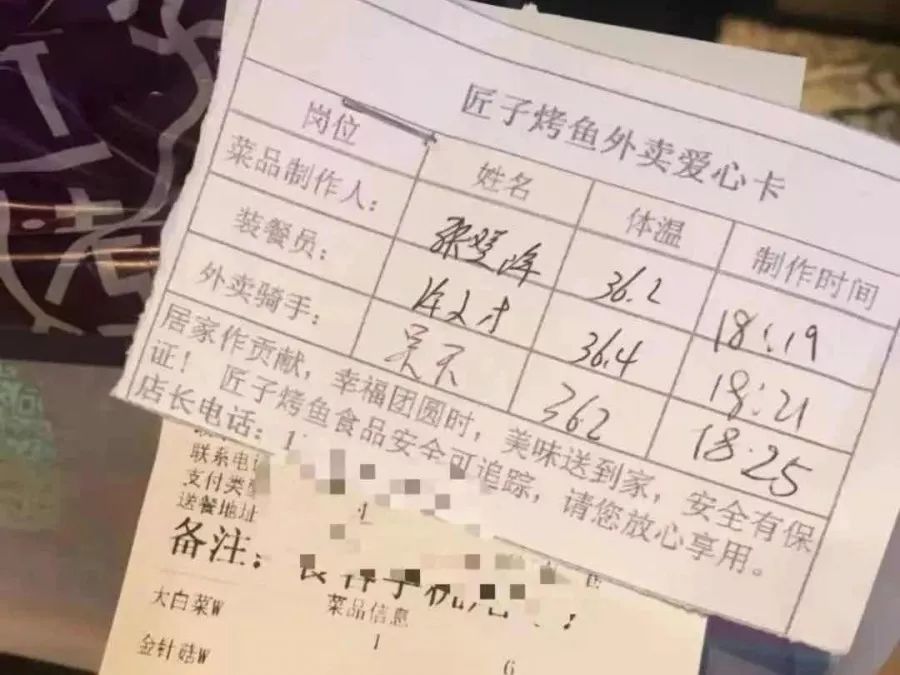 匠子烤鱼外卖爱心卡
岗位 姓名 体温 制作时间
菜品制作人： 36.2 18:19
装餐员： 36.4 18:21
外卖骑手： 吴 362 18:25
居家作贡献，幸福团圆时，美味送到家，安全有保
证！ 匠子烤鱼食品安全可追踪，请您放心享用。
店长电话：1
联系电话
支付类
送餐地址
备注：
菜品信息
大白菜W 1
金针菇W 6